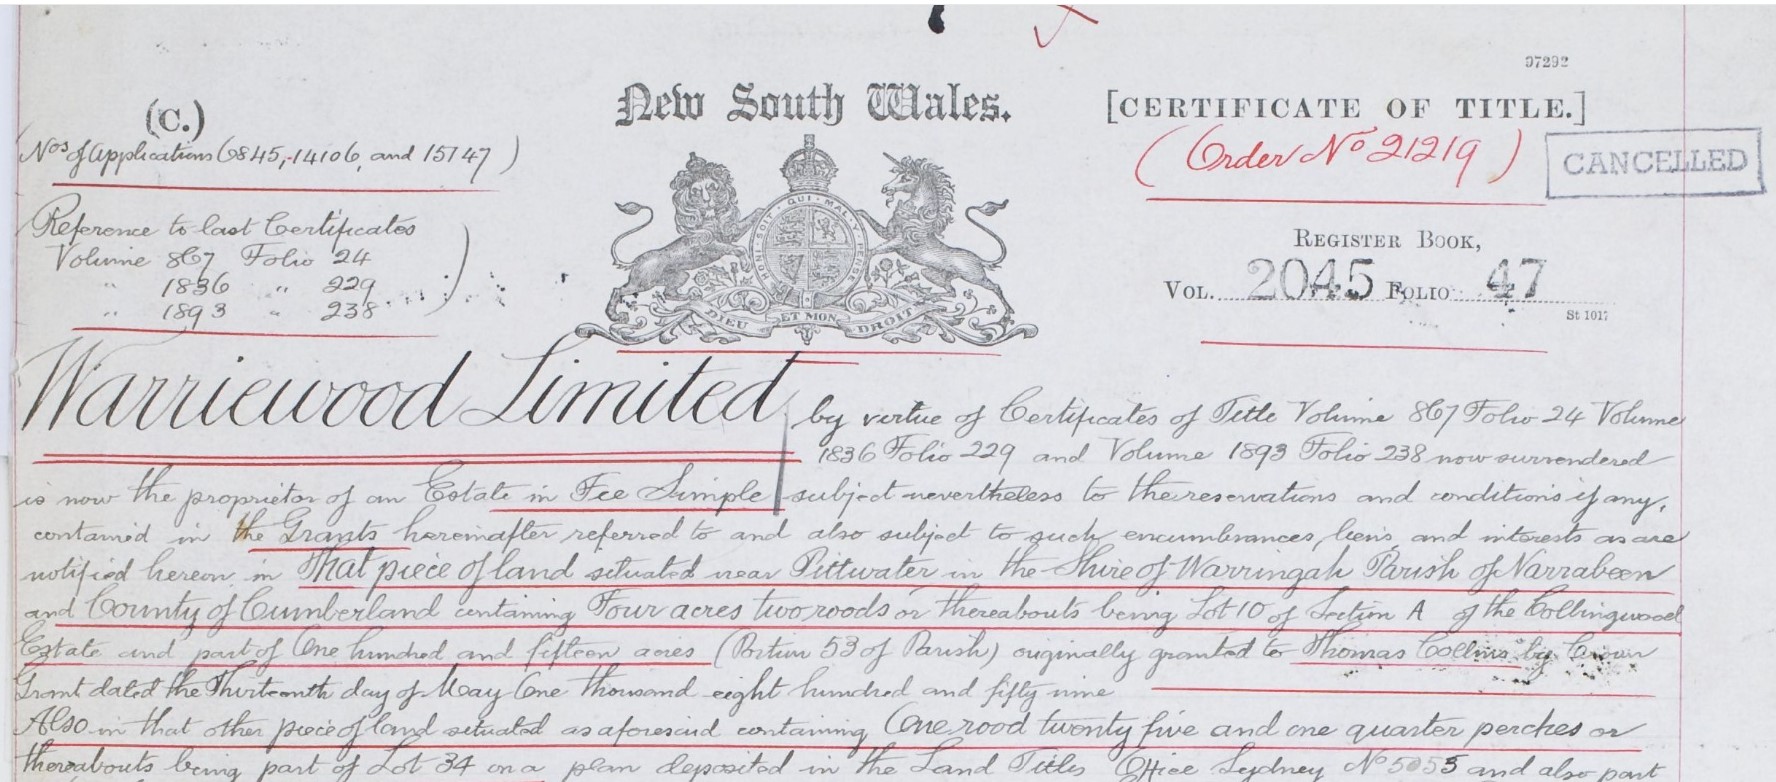 97292
(C.)
New South Wales.
[CERTIFICATE OF TITLE.]
(Nos of Applications 6845, 14106, and 15747)
(Order No 21219)
CANCELLED
Reference to last Certificates
Volume 867 Folio 24
" 1836 " 229
" 1893 " 238
HONI · SOIT · QUI · MAL · Y · PENSE
DIEU ET MON DROIT
REGISTER BOOK,
VOL. 2045 FOLIO 47
St 1017
Warriewood Limited by virtue of Certificates of Title Volume 867 Folio 24 Volume
1836 Folio 229 and Volume 1893 Folio 238 now surrendered
is now the proprietor of an Estate in Fee Simple subject nevertheless to the reservations and conditions if any,
contained in the Grants hereinafter referred to and also subject to such encumbrances, liens, and interests as are
notified hereon in That piece of land situated near Pittwater in the Shire of Warringah Parish of Narrabeen
and County of Cumberland containing Four acres two roods or thereabouts being Lot 10 of Section A of the Collingwood
Estate and part of One hundred and fifteen acres (Portion 53 of Parish) originally granted to Thomas Collins by Crown
Grant dated the Thirteenth day of May One thousand eight hundred and fifty nine
Also in that other piece of land situated as aforesaid containing One rood twenty five and one quarter perches or
thereabouts being part of Lot 34 on a plan deposited in the Land Titles Office Sydney No 5055 and also part